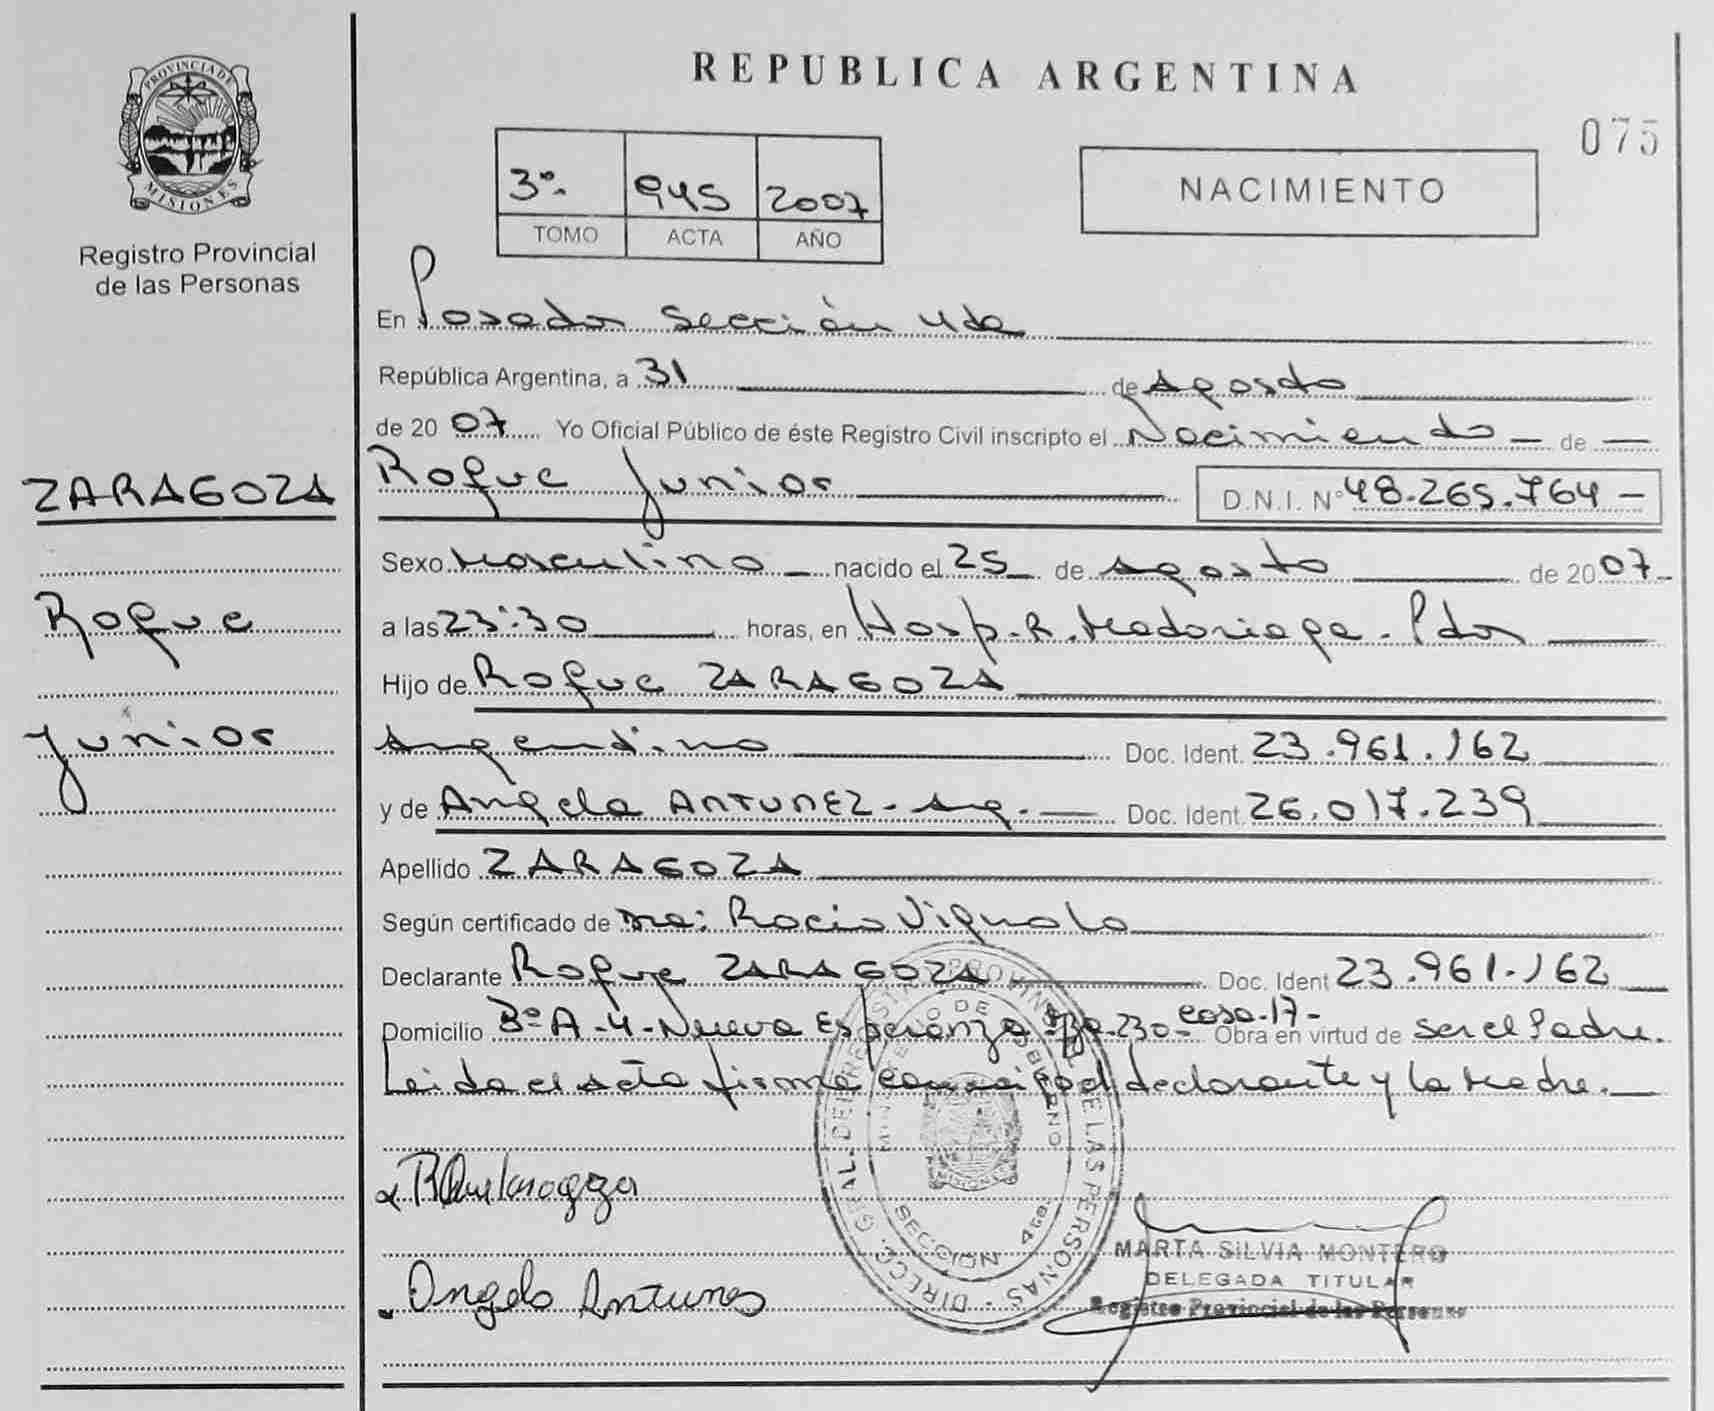 PROVINCIA DE
MISIONES
Registro Provincial
de las Personas
REPUBLICA ARGENTINA
075
3º. 945 2007
TOMO ACTA AÑO
NACIMIENTO
En Posadas Sección 4ta
República Argentina, a 31 de Agosto
de 2007 Yo Oficial Público de éste Registro Civil inscripto el Nacimiento de
ZARAGOZA
Roque Junior D.N.I. Nº 48.265.764 -
Sexo Masculino nacido el 25 de Agosto de 2007-
Roque
a las 23:30 horas, en Hosp. R. Madariaga - Pdas
Hijo de Roque ZARAGOZA
Junior
Argentino Doc. Ident. 23.961.162
y de Angela ANTUNEZ - Arg. Doc. Ident. 26.017.239
Apellido ZARAGOZA
Según certificado de Rocio Vignola
Declarante Roque ZARAGOZA Doc. Ident 23.961.162
Domicilio Bº A-4- Nueva Esperanza 230 - casa-17- Obra en virtud de ser el Padre.
Leida el acta firma conmigo el declarante y la Madre.
DIRECC. GRAL. DEL REGISTRO PROVINCIAL DE LAS PERSONAS
MINISTERIO DE GOBIERNO
MISIONES
SECCION 4ta.
Angela Antunes
MARTA SILVIA MONTERO
DELEGADA TITULAR
Registro Provincial de las Personas